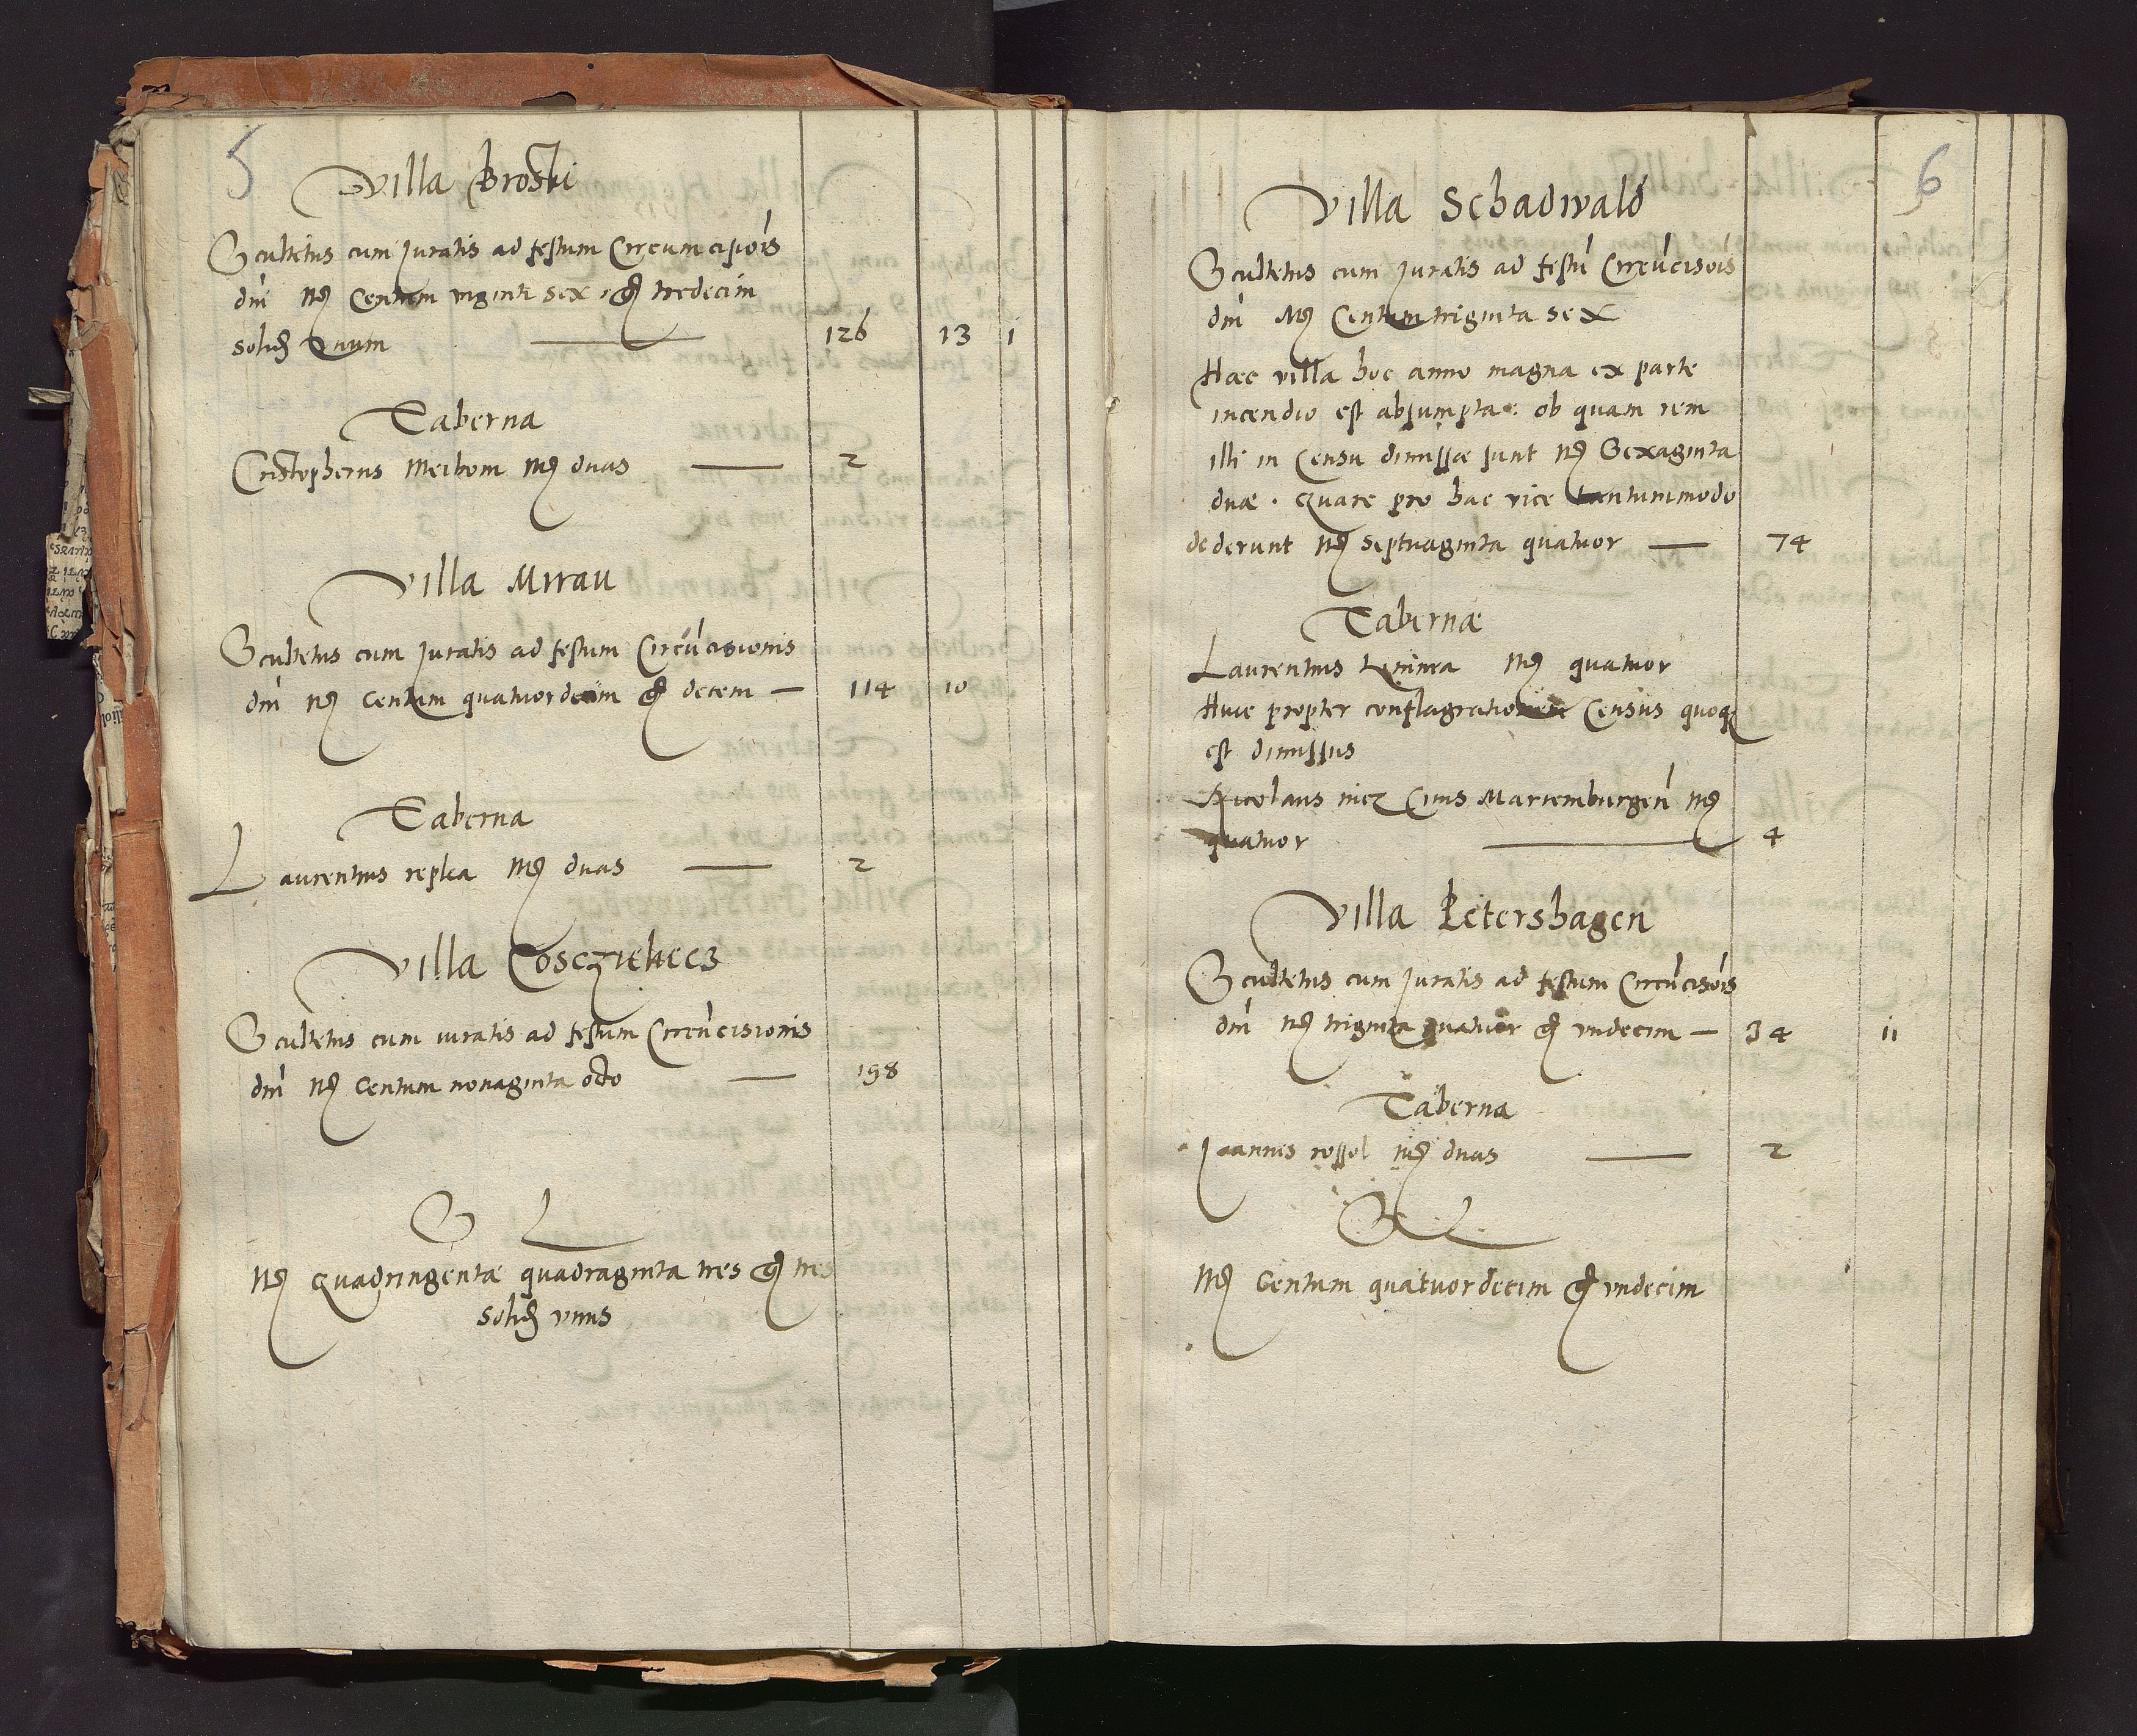 5
Villa Broski
Scultetus cum Juratis ad festum Circumcisiois
dni mr Centum viginti sex gr tredecim
solid Unum — 126 13 1
Taberna
Cristopherus Meihom mr duas — 2
Villa Mirau
Scultetus cum Juratis ad festum Circucisionis
dni mr Centum quatuordecim gr decem — 114 10
Taberna
Laurentius replea mr duas — 2
Villa Cosczieliecz
Scultetus cum iuratis ad festum Circucisionis
dni mr Centum nonaginta octo — 198
S L
mr Quadringentae quadraginta tres gr tres
solid unus
6
Villa Schadwald
Scultetus cum Juratis ad festu Circucisois
dni Mr Centum triginta sex
Haec villa hoc anno magna ex parte
incendio est absumpta: ob quam rem
illi in Censu dimissae sunt mr Sexaginta
duae. Quare pro hac vice tantummodo
dederunt mr septuaginta quatuor — 74
Tabernae
Laurentius mr quatuor
Huic propter conflagrationem Census quoq
est dimissus
Nicolaus Civis Mariemburgen mr
quatuor — 4
Villa Petershagen
Scultetus cum Juratis ad festum Circucisois
dni mr triginta quatuor gr undecim — 34 11
Taberna
Joannes rossol mr duas — 2
S L
mr Centum quatuordecim gr undecim